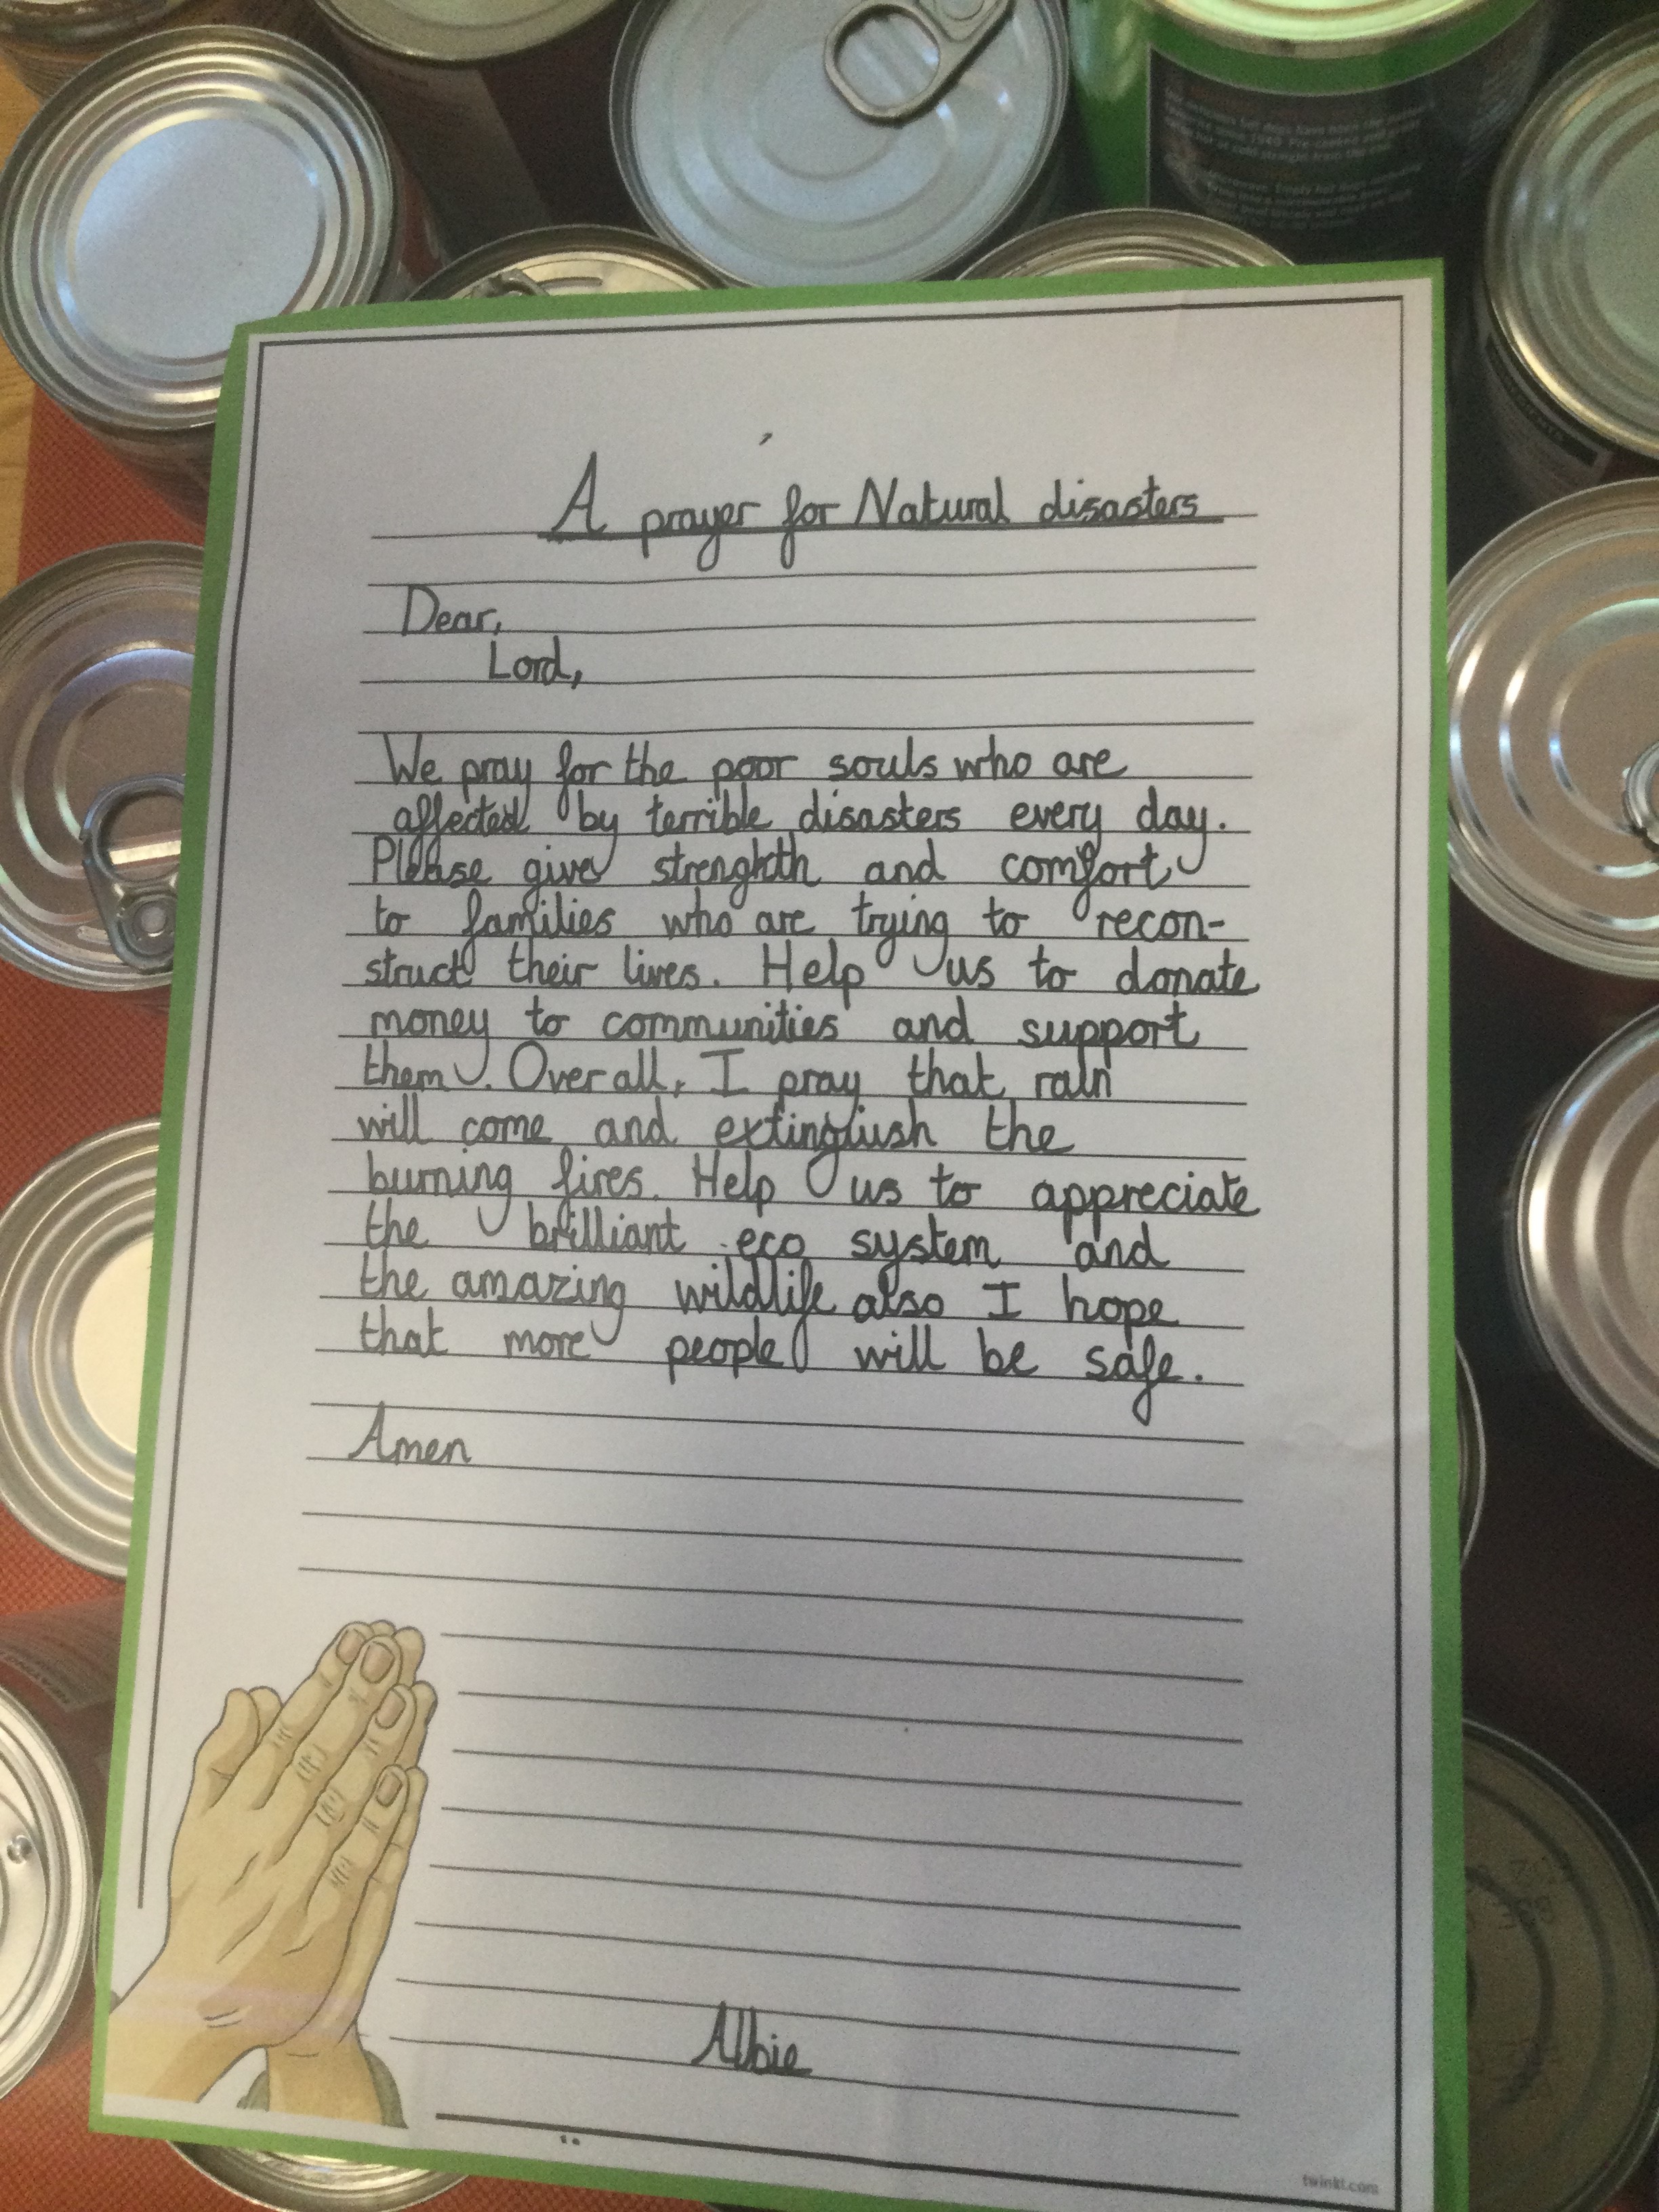 A prayer for Natural disasters
Dear,
Lord,
We pray for the poor souls who are
affected by terrible disasters every day.
Please give strenghth and comfort
to families who are trying to recon-
struct their lives. Help us to donate
money to communities and support
them. Over all, I pray that rain
will come and extinguish the
burning fires. Help us to appreciate
the brilliant eco system and
the amazing wildlife also I hope
that more people will be safe.
Amen
Albie
twinkl.com